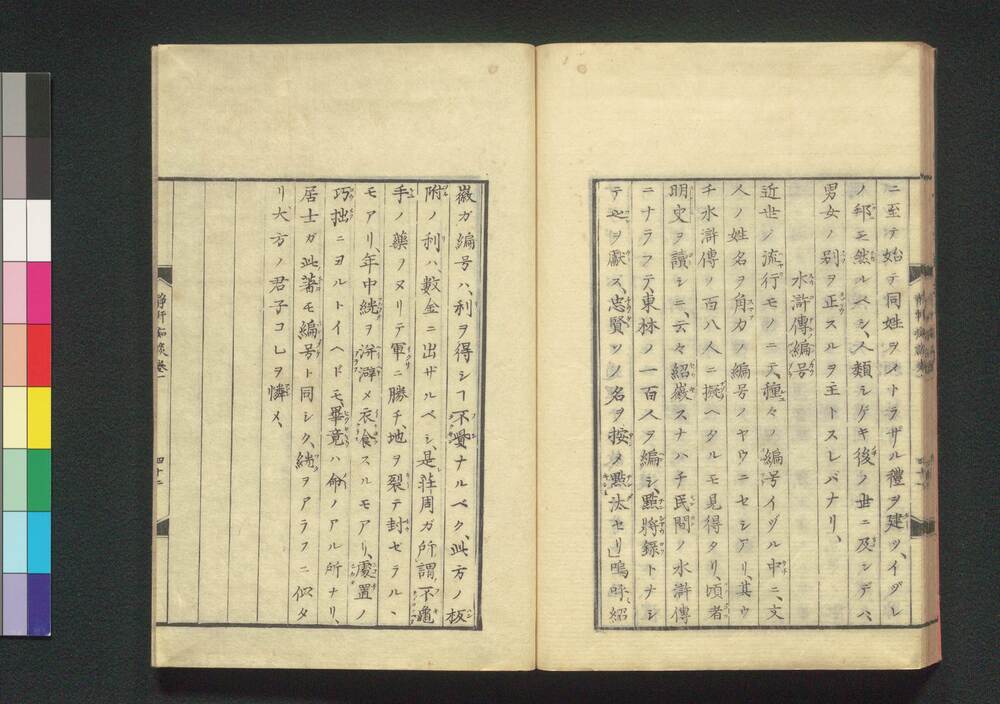 ニ至テ始テ同姓ヲメトラザル禮ヲ建ツ、イヅレ
ノ邦モ然ルベシ、人類シゲキ後ノ世ニ及ンデハ、
男女ノ別ヲ正スルヲ主トスレバナリ、
水滸傳編号
近世ノ流行モノニテ、種々ノ編号イヅル中ニ、文
人ノ姓名ヲ角力ノ編号ノヤウニセシアリ、其ウ
チ水滸傳ノ百八人ニ擬ヘタルモ見得タリ、頃者
明史ヲ讀シニ、云々紹徽スナハチ民間ノ水滸傳
ニナラフテ、東林ノ一百八人ヲ編シ、點將錄トナシ
テ之ヲ獻ス、忠賢ソノ名ヲ按メ黜汰セリ」嗚呼紹
徽ガ編号ハ、利ヲ得シヿ不貲ナルベク、此方ノ板
附ノ利ハ、數金ニ出ザルベシ、是荘周ガ所謂、不龜
手ノ藥ヲヌリテ軍ニ勝チ、地ヲ裂テ封セラル、
モアリ、年中絖ヲ洴澼メ衣食スルモアリ、處置ノ
巧拙ニヨルトイヘドモ、畢竟ハ命ノアル所ナリ、
居士ガ此著モ編号ト同シク、絖ヲアラフニ似タ
リ大方ノ君子コレヲ憐メ、
静軒痴談巻一
四十二